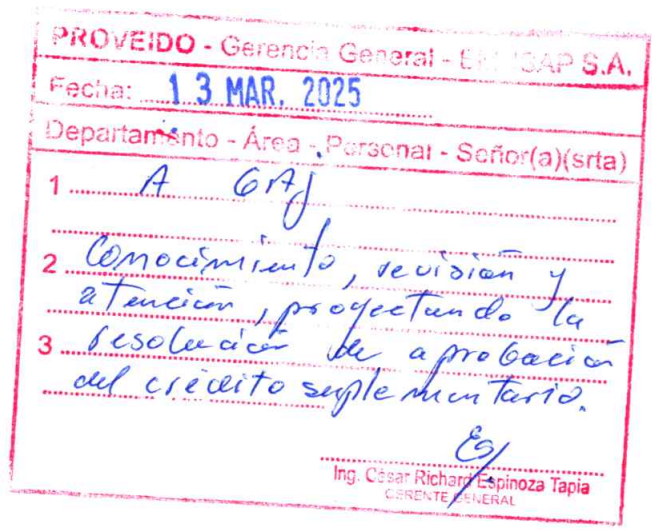 PROVEIDO - Gerencia General - S.A.
Fecha: 13 MAR. 2025
Departamento - Área - Personal - Señor(a)(srta)
1 A GAJ
2 Conocimiento, revisión y
atención, proyectando la
3 resolución de aprobación
del crédito suplementario.
Ing. César Richard Espinoza Tapia
GERENTE GENERAL